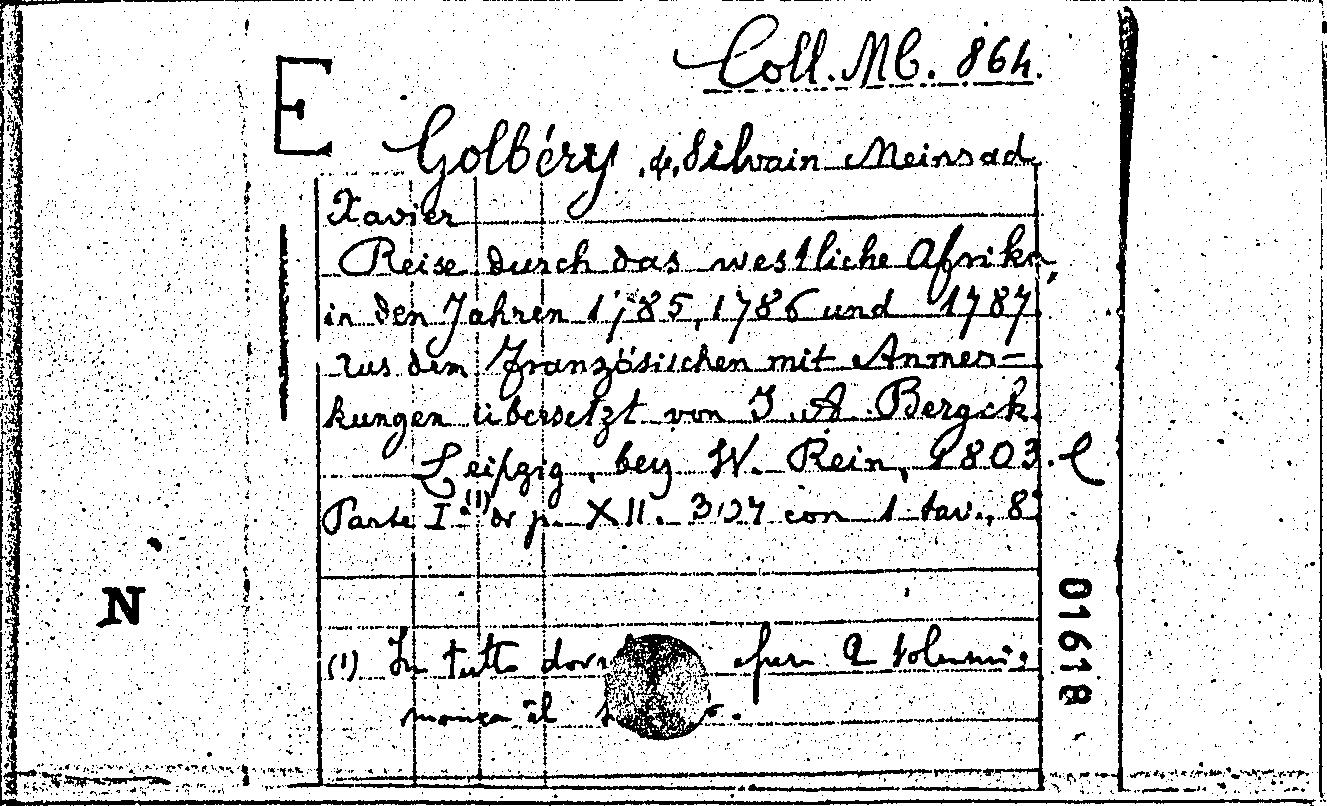 E
Coll. MB. 864.
Golbéry, de, Silvain Meinrad
Xavier
Reise durch das westliche Afrika,
in den Jahren 1785, 1786 und 1787
aus dem Französischen mit Anmer=
kungen übersetzt von J. A. Bergck.
Leipzig, bey W. Rein, 1803.
Parte I.(1) di p. XII. con 1 tav., 8º
(1) In tutto 2 volumi.
manca il
N
01618